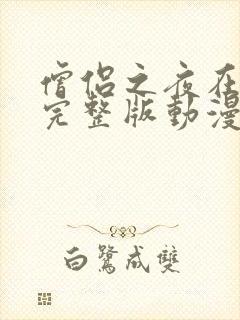 僧侶之夜在
完整版動漫
白鷺成雙